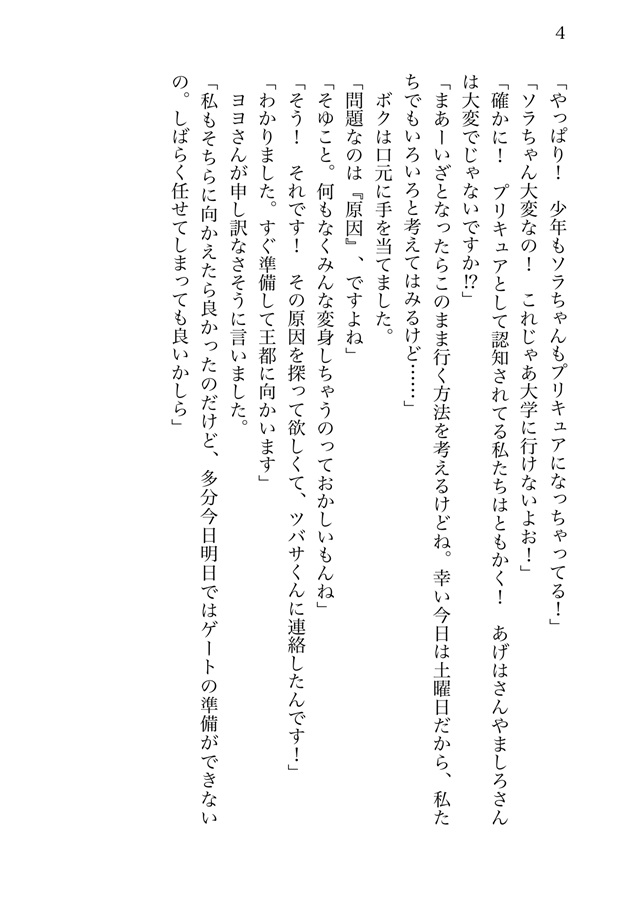 4
「やっぱり！　少年もソラちゃんもプリキュアになっちゃってる！」
「ソラちゃん大変なの！　これじゃあ大学に行けないよお！」
「確かに！　プリキュアとして認知されてる私たちはともかく！　あげはさんやましろさん
は大変でじゃないですか⁉」
「まあーいざとなったらこのまま行く方法を考えるけどね。幸い今日は土曜日だから、私た
ちでもいろいろと考えてはみるけど……」
　ボクは口元に手を当てました。
「問題なのは『原因』、ですよね」
「そゆこと。何もなくみんな変身しちゃうのっておかしいもんね」
「そう！　それです！　その原因を探って欲しくて、ツバサくんに連絡したんです！」
「わかりました。すぐ準備して王都に向かいます」
　ヨヨさんが申し訳なさそうに言いました。
「私もそちらに向かえたら良かったのだけど、多分今日明日ではゲートの準備ができない
の。しばらく任せてしまっても良いかしら」